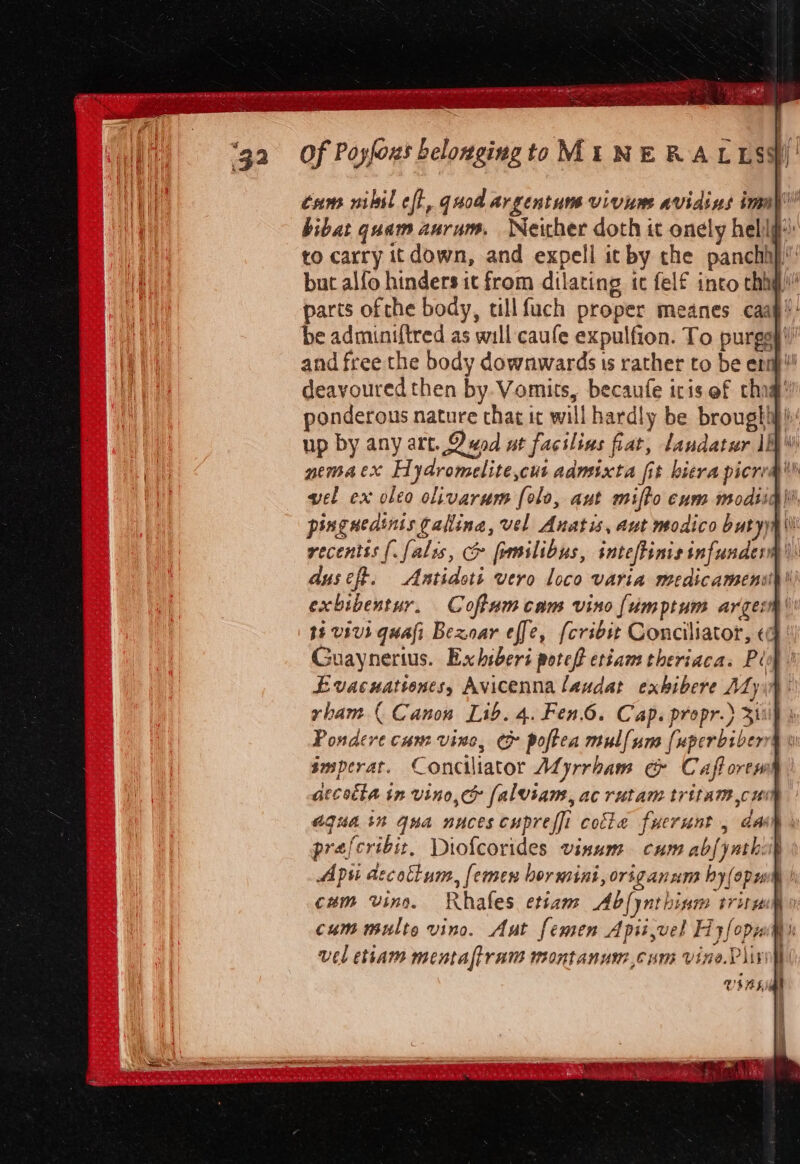 32 Of Poyſons belonging to MINERALLS
cum nihil eſt, quod argentum vivum avidius im-
bibat quam aurum. Neither doth it onely
to carry it down, and expell it by the
but alſo hinders it from dilating it ſelf into
parts of the body, till ſuch proper meanes
be adminiſtred as will cauſe expulſion. To
and free the body downwards is rather to be
deavoured then by Vomits, becauſe it is of
ponderous nature that it will hardly be
up by any art. Quod ut facilius fiat, laudatur
nema ex Hydromelite, cui admixta ſit hiera
vel ex oleo olivarum ſolo, aut miſto cum
pinguedinis gallina, vel Anatis, aut modico
recentis ſ. ſalis, & ſimilibus, inteſtinis
dus eſt. Antidoti vero loco varia
exhibentur. Coſtum cum vino ſumptum
ti vivi quaſi Bezoar eſſe, ſcribit Conciliator,
Guaynerius. Exhiberi poteſt etiam theriaca.
Evacuationes, Avicenna laudat exhibere
rham (Canon Lib. 4. Fen. 6. Cap. propr.)
Pondere cum vino, & poſtea mulſum
imperat. Conciliator Myrrham &
decocta in vino, & ſalviam, ac rutam tritam,
aqua in qua nuces cupreſſi coctæ fuerunt,
præſcribit. Dioſcorides vinum cum
Apii decoctum, ſemen hormini, origanum
cum vino. Rhaſes etiam Abſynthium
cum multo vino. Aut ſemen Apii, vel
vel etiam mentaſtrum montanum, cum vino.